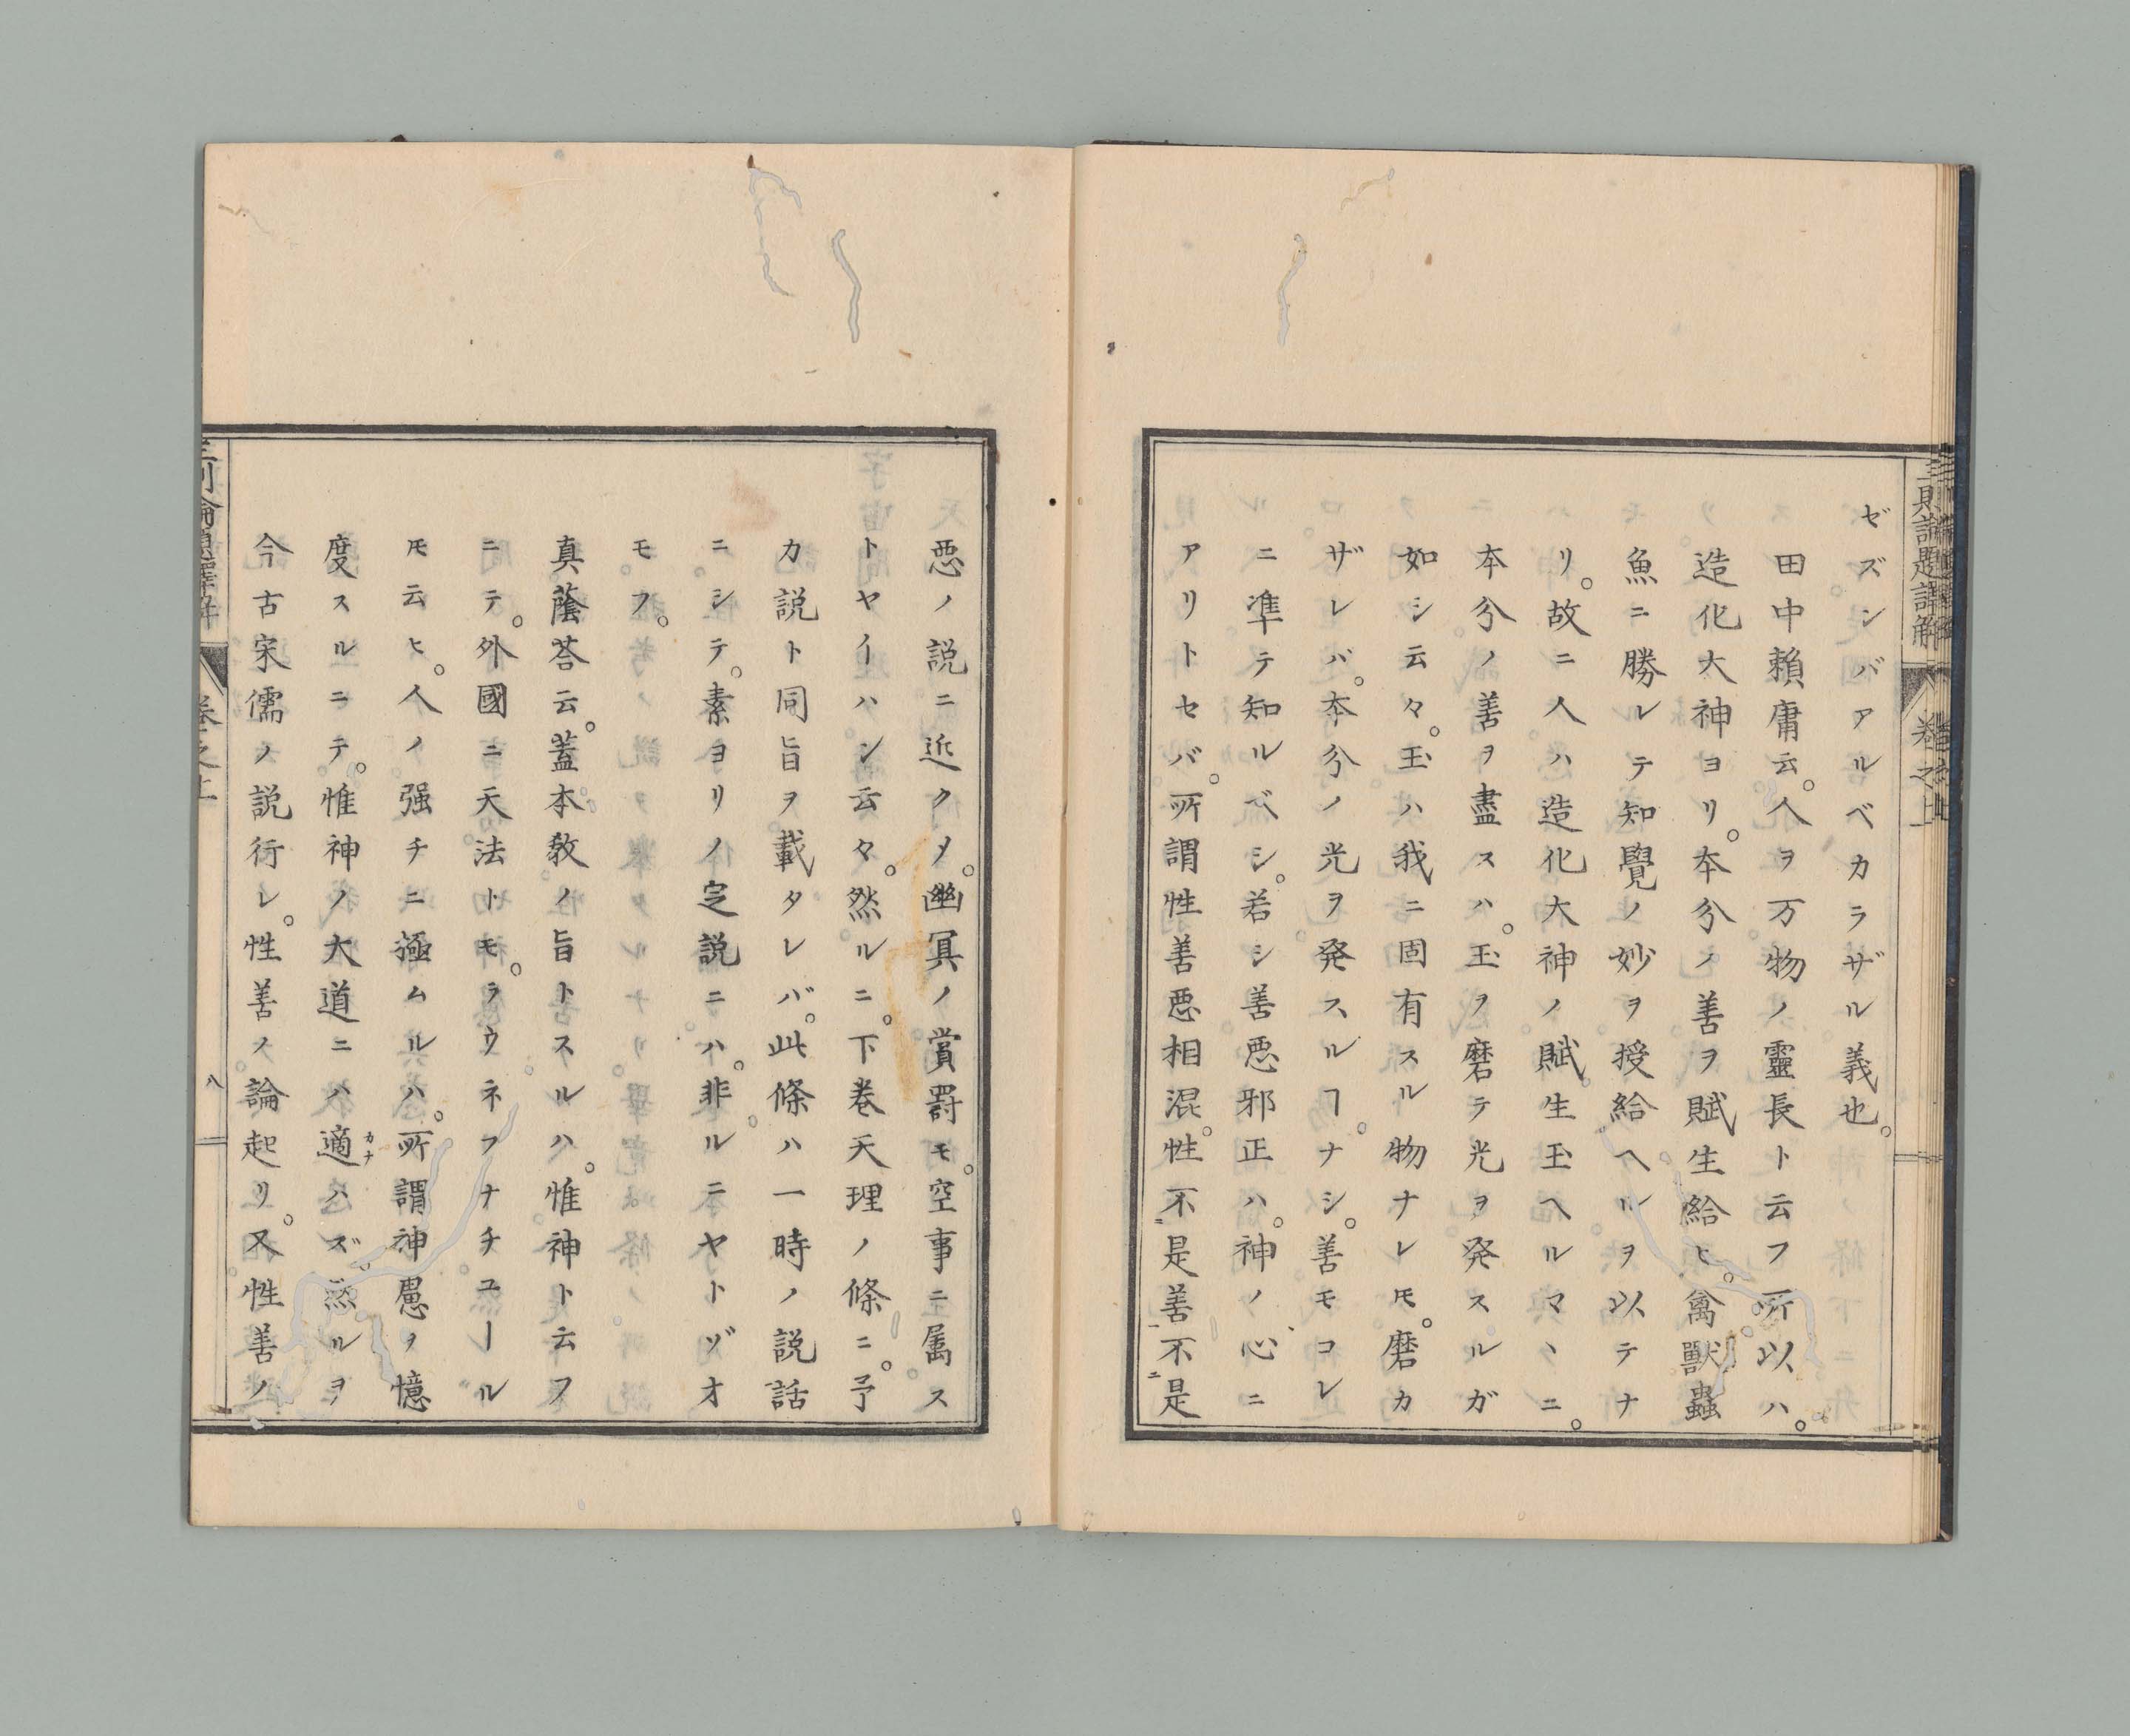 ゼズンバアルベカラザル義也。
田中賴庸云。人ヲ万物ノ靈長ト云フ所以ハ。
造化大神ヨリ。本分ノ善ヲ賦生給ヒ。禽獸蟲
魚ニ勝レテ知覺ノ妙ヲ授給ヘルヲ以テナ
リ。故ニ人ハ造化大神ノ賦生玉ヘルマヽニ。
本分ノ善ヲ盡スハ。玉ヲ磨テ光ヲ発スルガ
如シ云々。玉ハ我ニ固有スル物ナレ𪜈。磨カ
ザレバ。本分ノ光ヲ発スルヿナシ。善モコレ
ニ凖テ知ルベシ。若シ善惡邪正ハ。神ノ心ニ
アリトセバ。所謂性善惡相混。性不是善不是
惡ノ説ニ近クメ。幽冥ノ賞罸モ。空事ニ属ス
トヤイハン云々。然ルニ。下巻天理ノ條ニ。予
カ説ト同旨ヲ載タレバ。此條ハ一時ノ説話
ニシテ。素ヨリノ定説ニハ。非ルニヤトゾオ
モフ。
真蔭荅云。蓋本教ノ旨トスルハ。惟神ト云フ
ニテ。外國ニ天法トモ。ラウネフナチユール
𪜈云ヒ。人ノ强チニ極ムルハ。所謂神慮ヲ憶
度スルニテ。惟神ノ大道ニハ適ハズ。然ルヲ
カナ
今古宋儒ノ説行レ。性善ノ論起リ。又性善ノ
巻之上
八